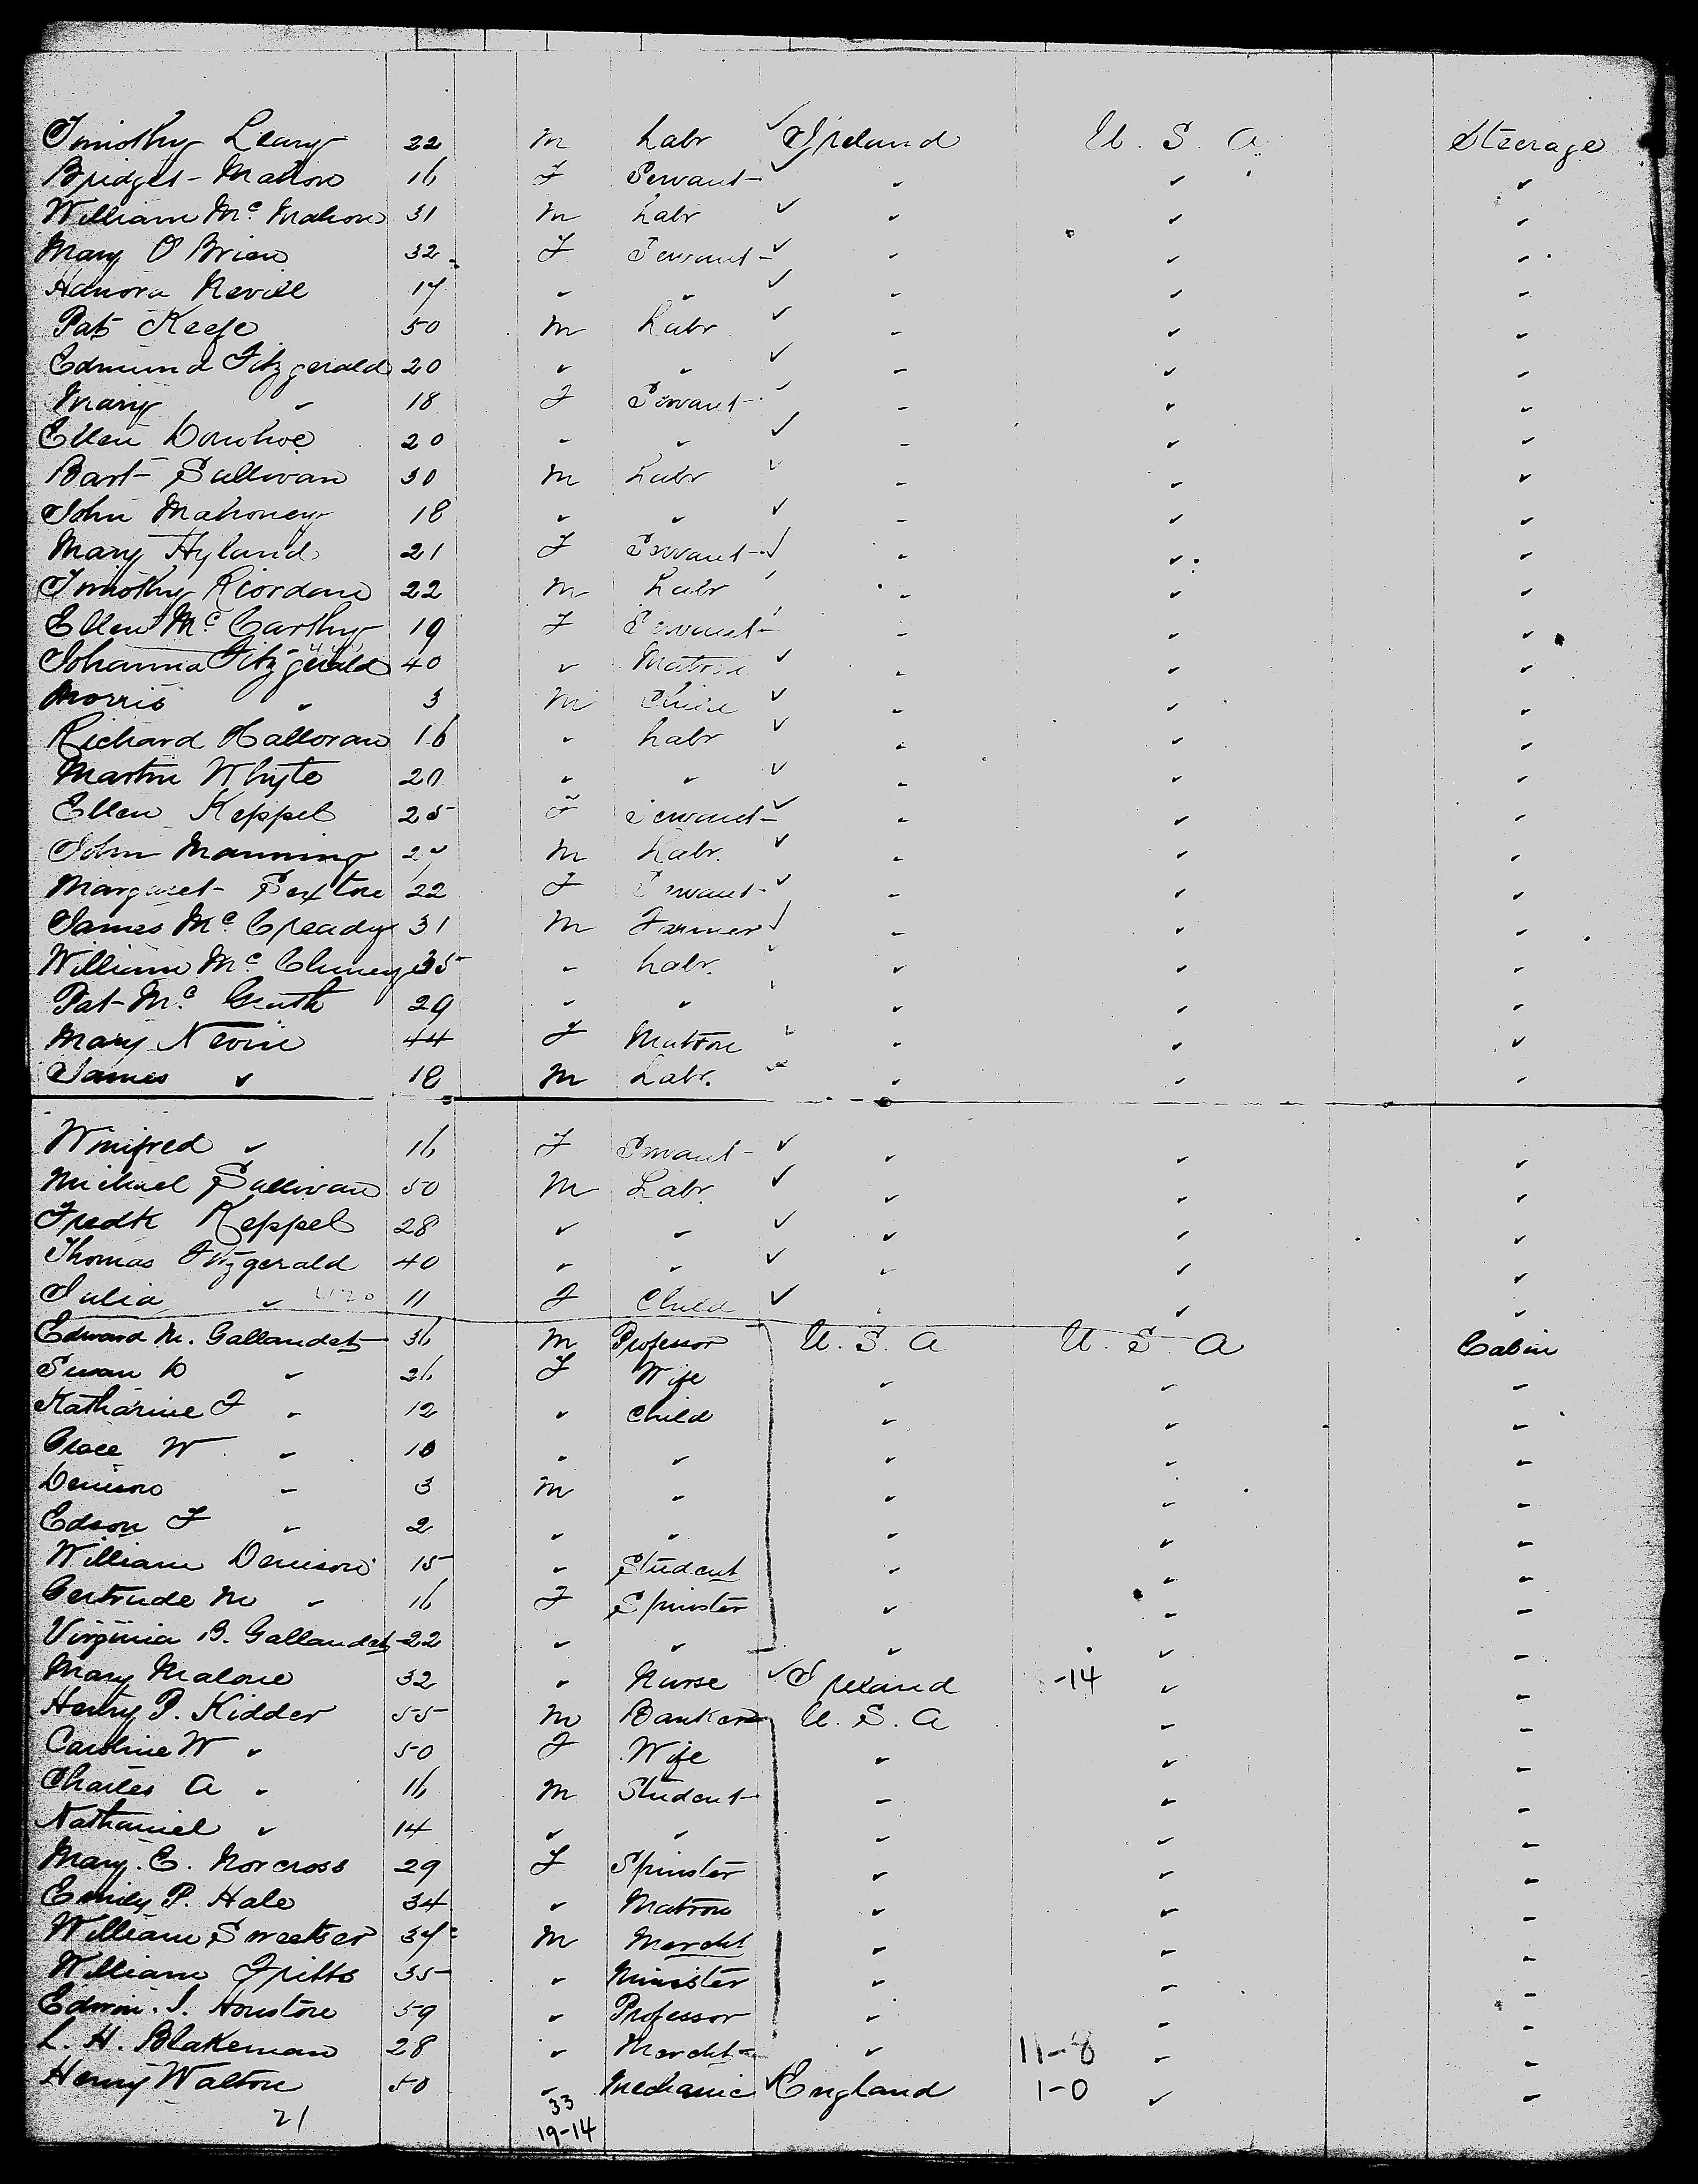 Timothy Leary 22 M Labr ✓ Ireland U. S. A Steerage
Bridget Mahon 16 F Servant ✓ " " "
William Mc Mahon 31 M Labr ✓ " " "
Mary O'Brien 32 F Servant ✓ " " "
Hanora Nevill 17 " " ✓ " " "
Pat Keefe 50 M Labr ✓ " " "
Edmund Fitzgerald 20 " " ✓ " " "
Mary " 18 F Servant ✓ " " "
Ellen Donohoe 20 " " ✓ " " "
Bart Sullivan 30 M Labr ✓ " " "
John Mahoney 18 " " ✓ " " "
Mary Hyland 21 F Servant ✓ " " "
Timothy Riordan 22 M Labr ✓ " " "
Ellen Mc Carthy 19 F Servant ✓ " " "
Johanna Fitzgerald 40 " Matron ✓ " " "
Morris " 3 M Child ✓ " " "
Richard Halloran 16 " Labr ✓ " " "
Martin Whyte 20 " " ✓ " " "
Ellen Keppel 25 F Servant ✓ " " "
John Manning M Labr. ✓ " " "
Margaret Sexton 22 F Servant ✓ " " "
James Mc Cready 31 M Farmer ✓ " " "
William Mc Cluney 35 " Labr. ✓ " " "
Pat Mc Grath 29 " " ✓ " " "
Mary Nevin 44 F Matron ✓ " " "
James " 18 M Labr. ✓ " " "
Winifred " 16 F Servant ✓ " " "
Michael Sullivan 50 M Labr. ✓ " " "
Fredk Keppel 28 " " ✓ " " "
Thomas Fitzgerald 40 " " ✓ " " "
Julia " 11 F Child ✓ " " "
Edward M. Gallaudet 36 M Professor U. S. A U. S. A Cabin
Susan D " 26 F Wife " " "
Katharine F " 12 " Child " " "
Grace W " 10 " " " " "
Denison " 3 M " " " "
Edson F " 2 " " " " "
William Denison 15 " Student " " "
Gertrude M " 16 F Spinster " " "
Virginia B. Gallaudet 22 " " " " "
Mary Malone 32 " Nurse ✓ Ireland -14 " "
Henry P. Kidder 55 M Banker U. S. A " "
Caroline W " 50 F Wife " " "
Charles A " 16 M Student " " "
Nathaniel " 14 " " " " "
Mary E. Norcross 29 F Spinster " " "
Emily P. Hale 34 " Matron " " "
William Sweetser 37 M Mercht " " "
William Fritts 35 " Minister " " "
Edwin J. Houston 59 " Professor " " "
L. H. Blakeman 28 " Mercht " 11-8 " "
Henry Walton 50 " Mechanic ✓ England 1-0 " "
21 33
19-14